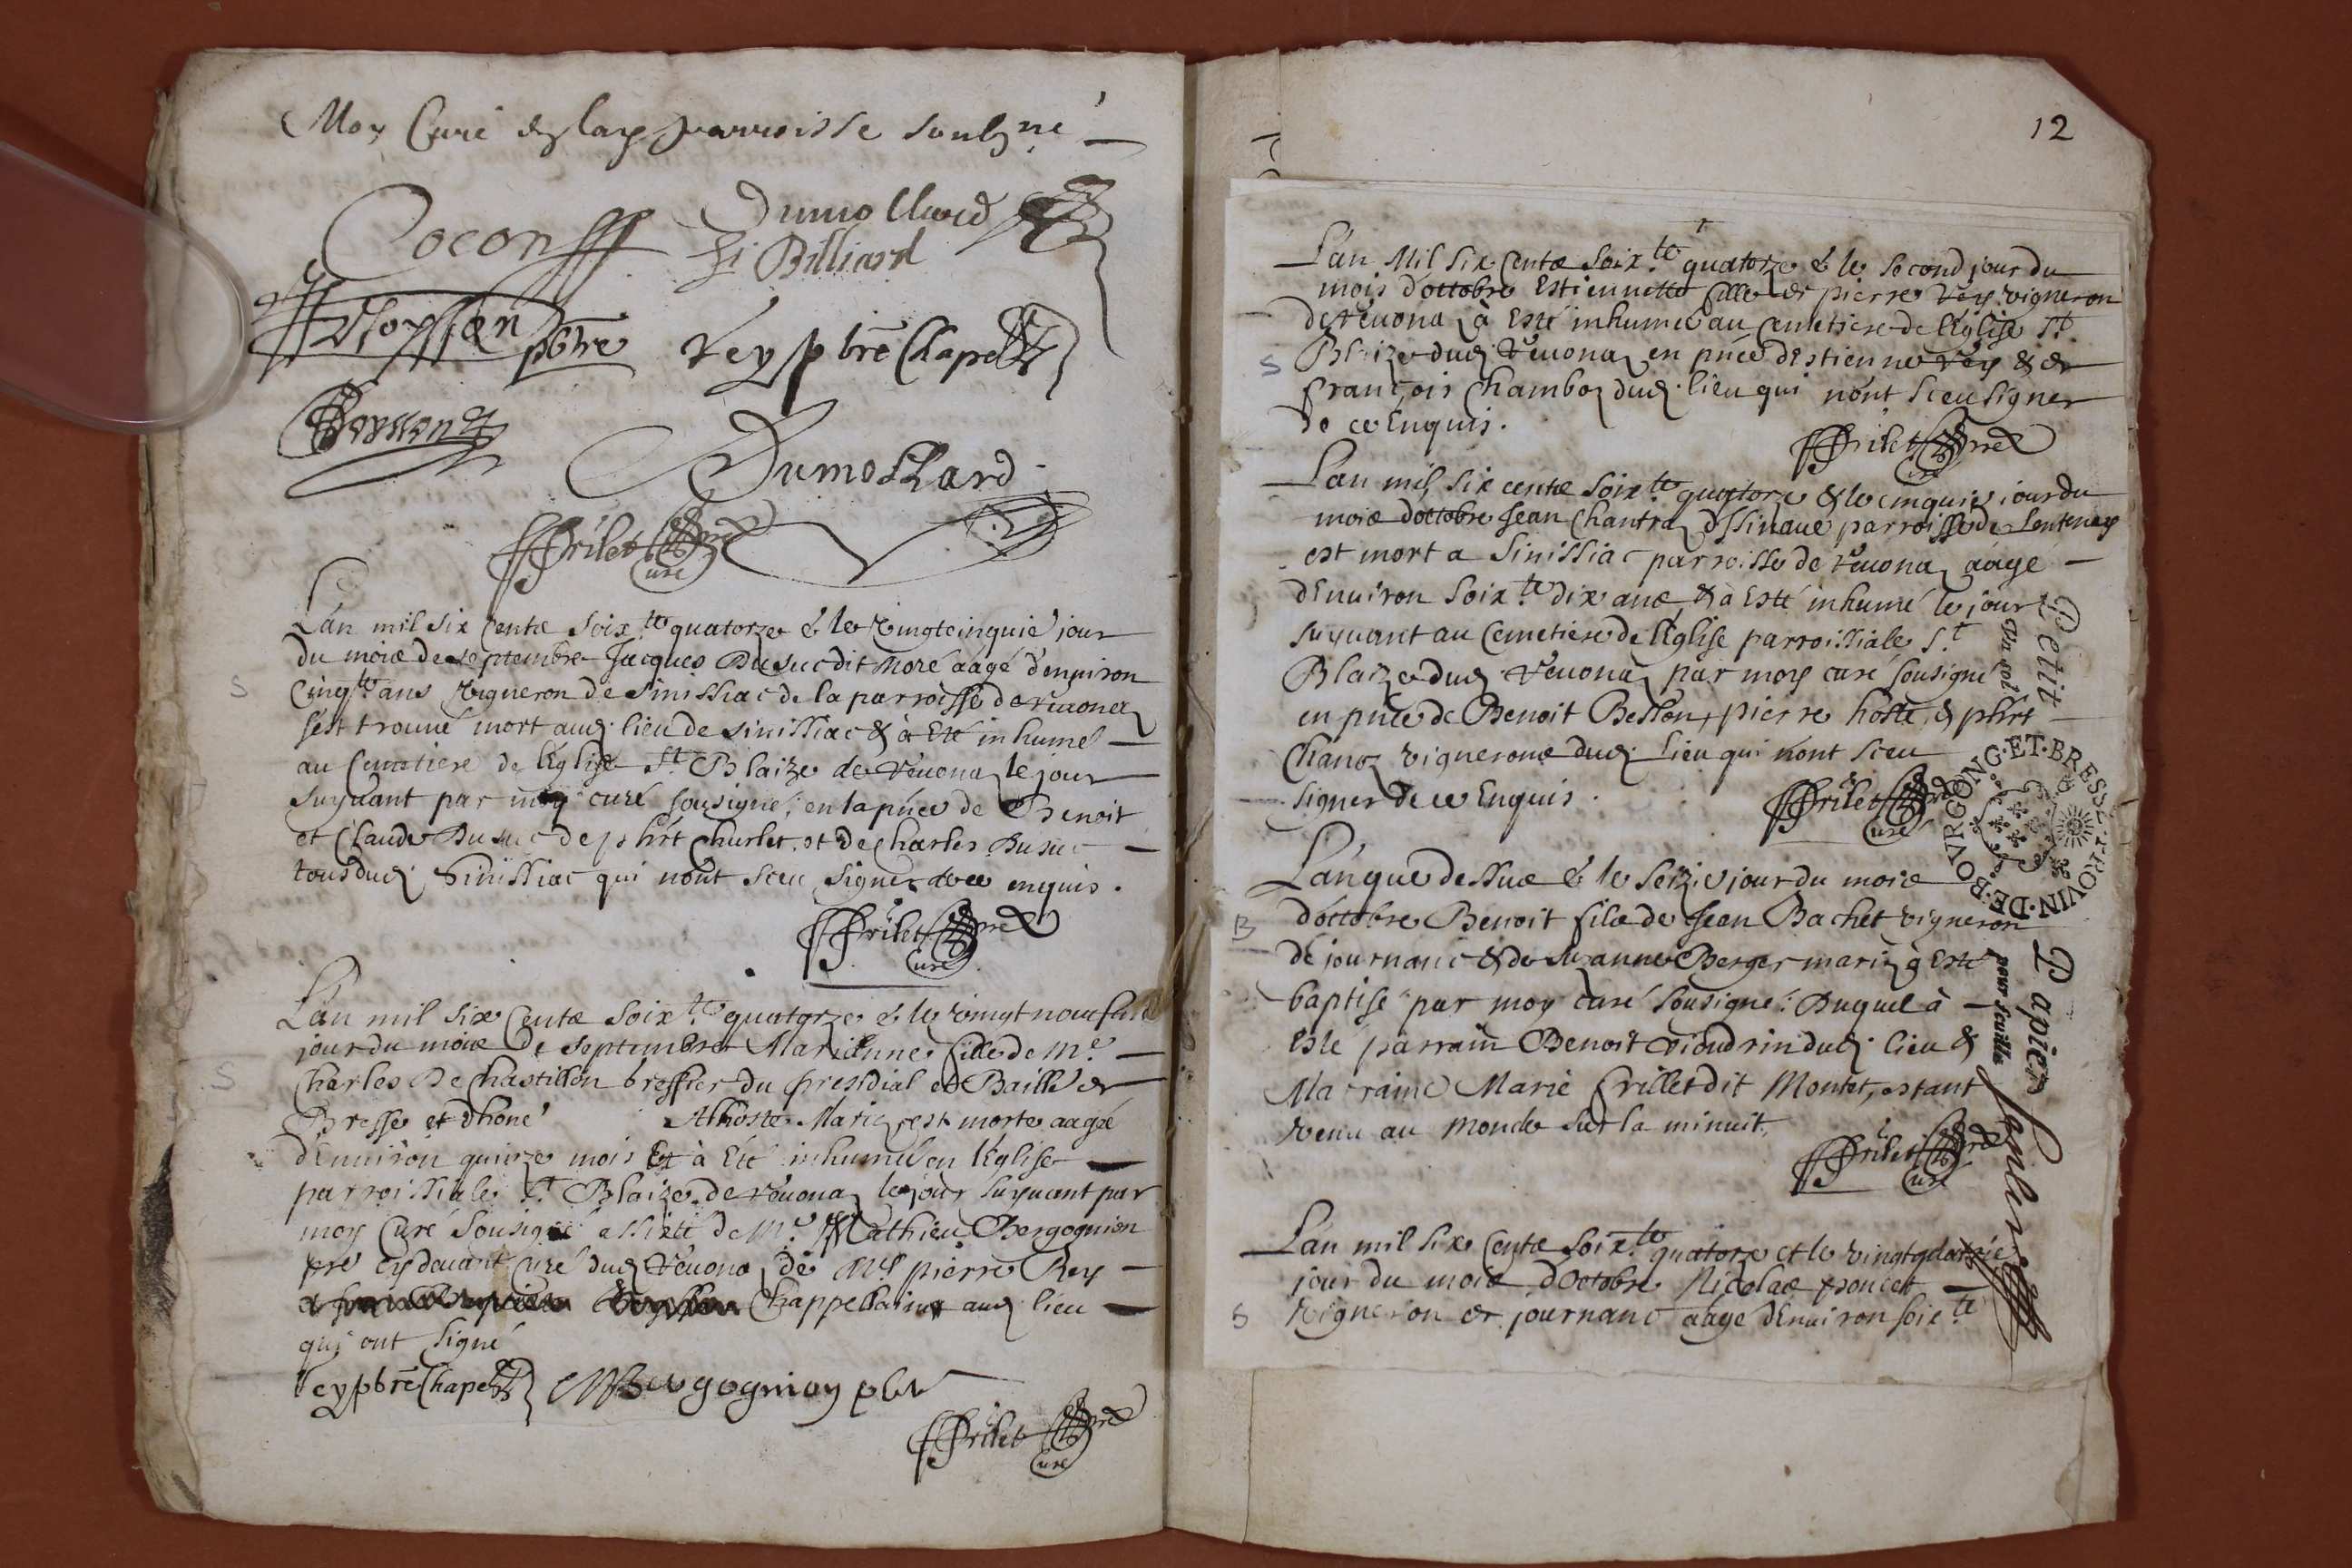 Moy Curé de lad parroisse soubsné
Cocon Dumollard
Billiard
Moyssan pbre Rey pbre Chapel
Dumollard
FFrilet pre
Curé
L'an mil six Cents soix.te quatorze & le vingtcinquie jour
du mois de septembre Jacques Dusuc dit Moré aagé d'enuiron
Cinq.te ans Vigneron de Sinissiac de la parroisse de reuona
S
s'est trouué mort aud. lieu de Sinissiac & à Eté inhumé
au Cemetiere de l'église St Blaize de Reuona le jour
suyuant par moy curé sousigné; en la pnce de Benoit
et Claude Dusuc de phrt Churlet. et de Charles Dusuc
tous dud. Sinissiac qui n'ont sceu signer de ce enquis.
FFrilet pre
Curé
L'an mil six Cents soix.te quatorze & le vingt neuf
jour du mois de septembre Marianne fille de Me
S
Charles De Chastillon Greffier du presidial et Baille de
Bresse et d'hone Alhoste Marie, est morte aagée
d'enuiron quinze mois Et à Eté inhumée en l'église
parroissiale St Blaize de reuona le jour suyuant par
moy Curé sousigné assisté de Mre Mathieu Bergognion
pre cy deuant Curé dud. Reuona, de Mre pierre Rey
Chappellain aud. lieu
qui ont signé
Rey pbre Chapel M Bergognion pbr
FFrilet pre
Curé
12
L'an Mil six Cents soix.te quatorze & le second jour du
mois d'octobre Estiennette fille de pierre Rey vigneron
de reuona à Esté inhumée au Cemetiere de l'église St.
S
Blaize dud. Reuona en pnce d'Estienne Rey & de
françois Chambo dud. lieu qui n'ont sceu signer
de ce Enquis.
FFrilet pre
Curé
L'an mil six cents soix.te quatorze & le cinquie jour du
mois d'octobre Jean Chantra d'Issinaue parroisse de Lentenay
est mort a Sinissiac parroisse de reuona aagé
d'Enuiron soix.te dix ans, & à Esté inhumé le jour
suyuant au Cemetiere de l'église parroissiale St
Blaize dud. Reuona par moy curé sousigné
en pnce de Benoit Besson, pierre hoste, & phrt
Chano vignerons dud. lieu qui n'ont sceu
signer de ce Enquis.
FFrilet pre
Curé
L'an que dessus & le seizie jour du mois
d'octobre Benoit fils de Jean Bachet vigneron
B
de journans & de Suzanne Berger mariz à Esté
baptisé par moy curé sousigné: Duquel à
Esté parrain Benoit vioudrin dud. lieu &
Marraine Marie frillet dit Montet, estant
venu au Monde sur la minuit.
FFrilet pre
Curé
L'an mil six Cents soix.te quatorze et le vingtquatrie
jour du mois d'Octobre Nicolas poncet
S
Vigneron de journans aagé d'Enuiron soix.te
Petit Papier
pour feuille
PROVIN·DE·BOVRGONG·ET·BRESSE